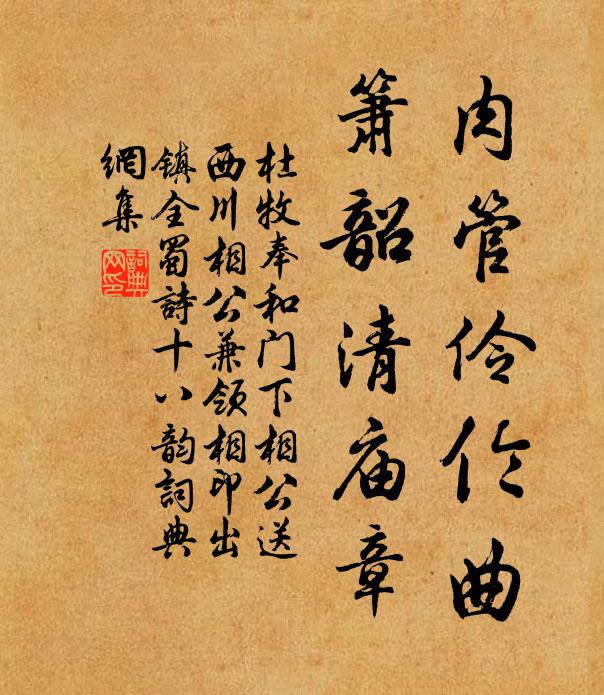 肉管伶伦曲
簫韶清庙章
杜牧奉和门下相公送
西川相公兼领相印出
镇全蜀詩十八韵詞典
網集
詞典
网印